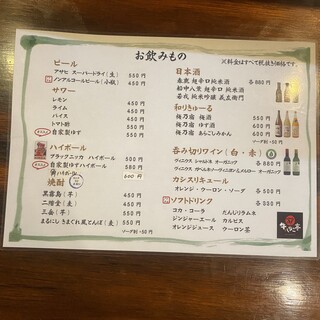 お飲みもの
※料金はすべて税抜き価格です。
ビール
アサヒ スーパードライ(生) 550円
ノンアルコールビール(小瓶) 450円
サワー
レモン 450円
ライム 450円
バイス 450円
トマト酎 550円
自家製ゆず 550円
ハイボール
ブラックニッカ ハイボール 500円
自家製ゆずハイボール 550円
600円
焼酎
黒霧島(芋) 450円
二階堂(麦) 450円
三岳(芋) 550円
まるにし うまくれ風とんぼ(麦) 550円
ソーダ割 +50円
日本酒
超辛口純米酒 各880円
船中八策 超辛口純米酒
純米吟醸
和りきゅーる
梅乃宿 梅酒 550円
梅乃宿 ゆず酒 600円
梅乃宿 あらごしみかん 600円
ソーダ割 +50円
呑み切りワイン(白・赤)
ヴィニウス シャルドネ オーガニック 各880円
オーガニック
カシスリキュール
オレンジ・ウーロン・ソーダ 各550円
ソフトドリンク 各300円
コカ・コーラ
ジンジャーエール カルピス
オレンジジュース ウーロン茶